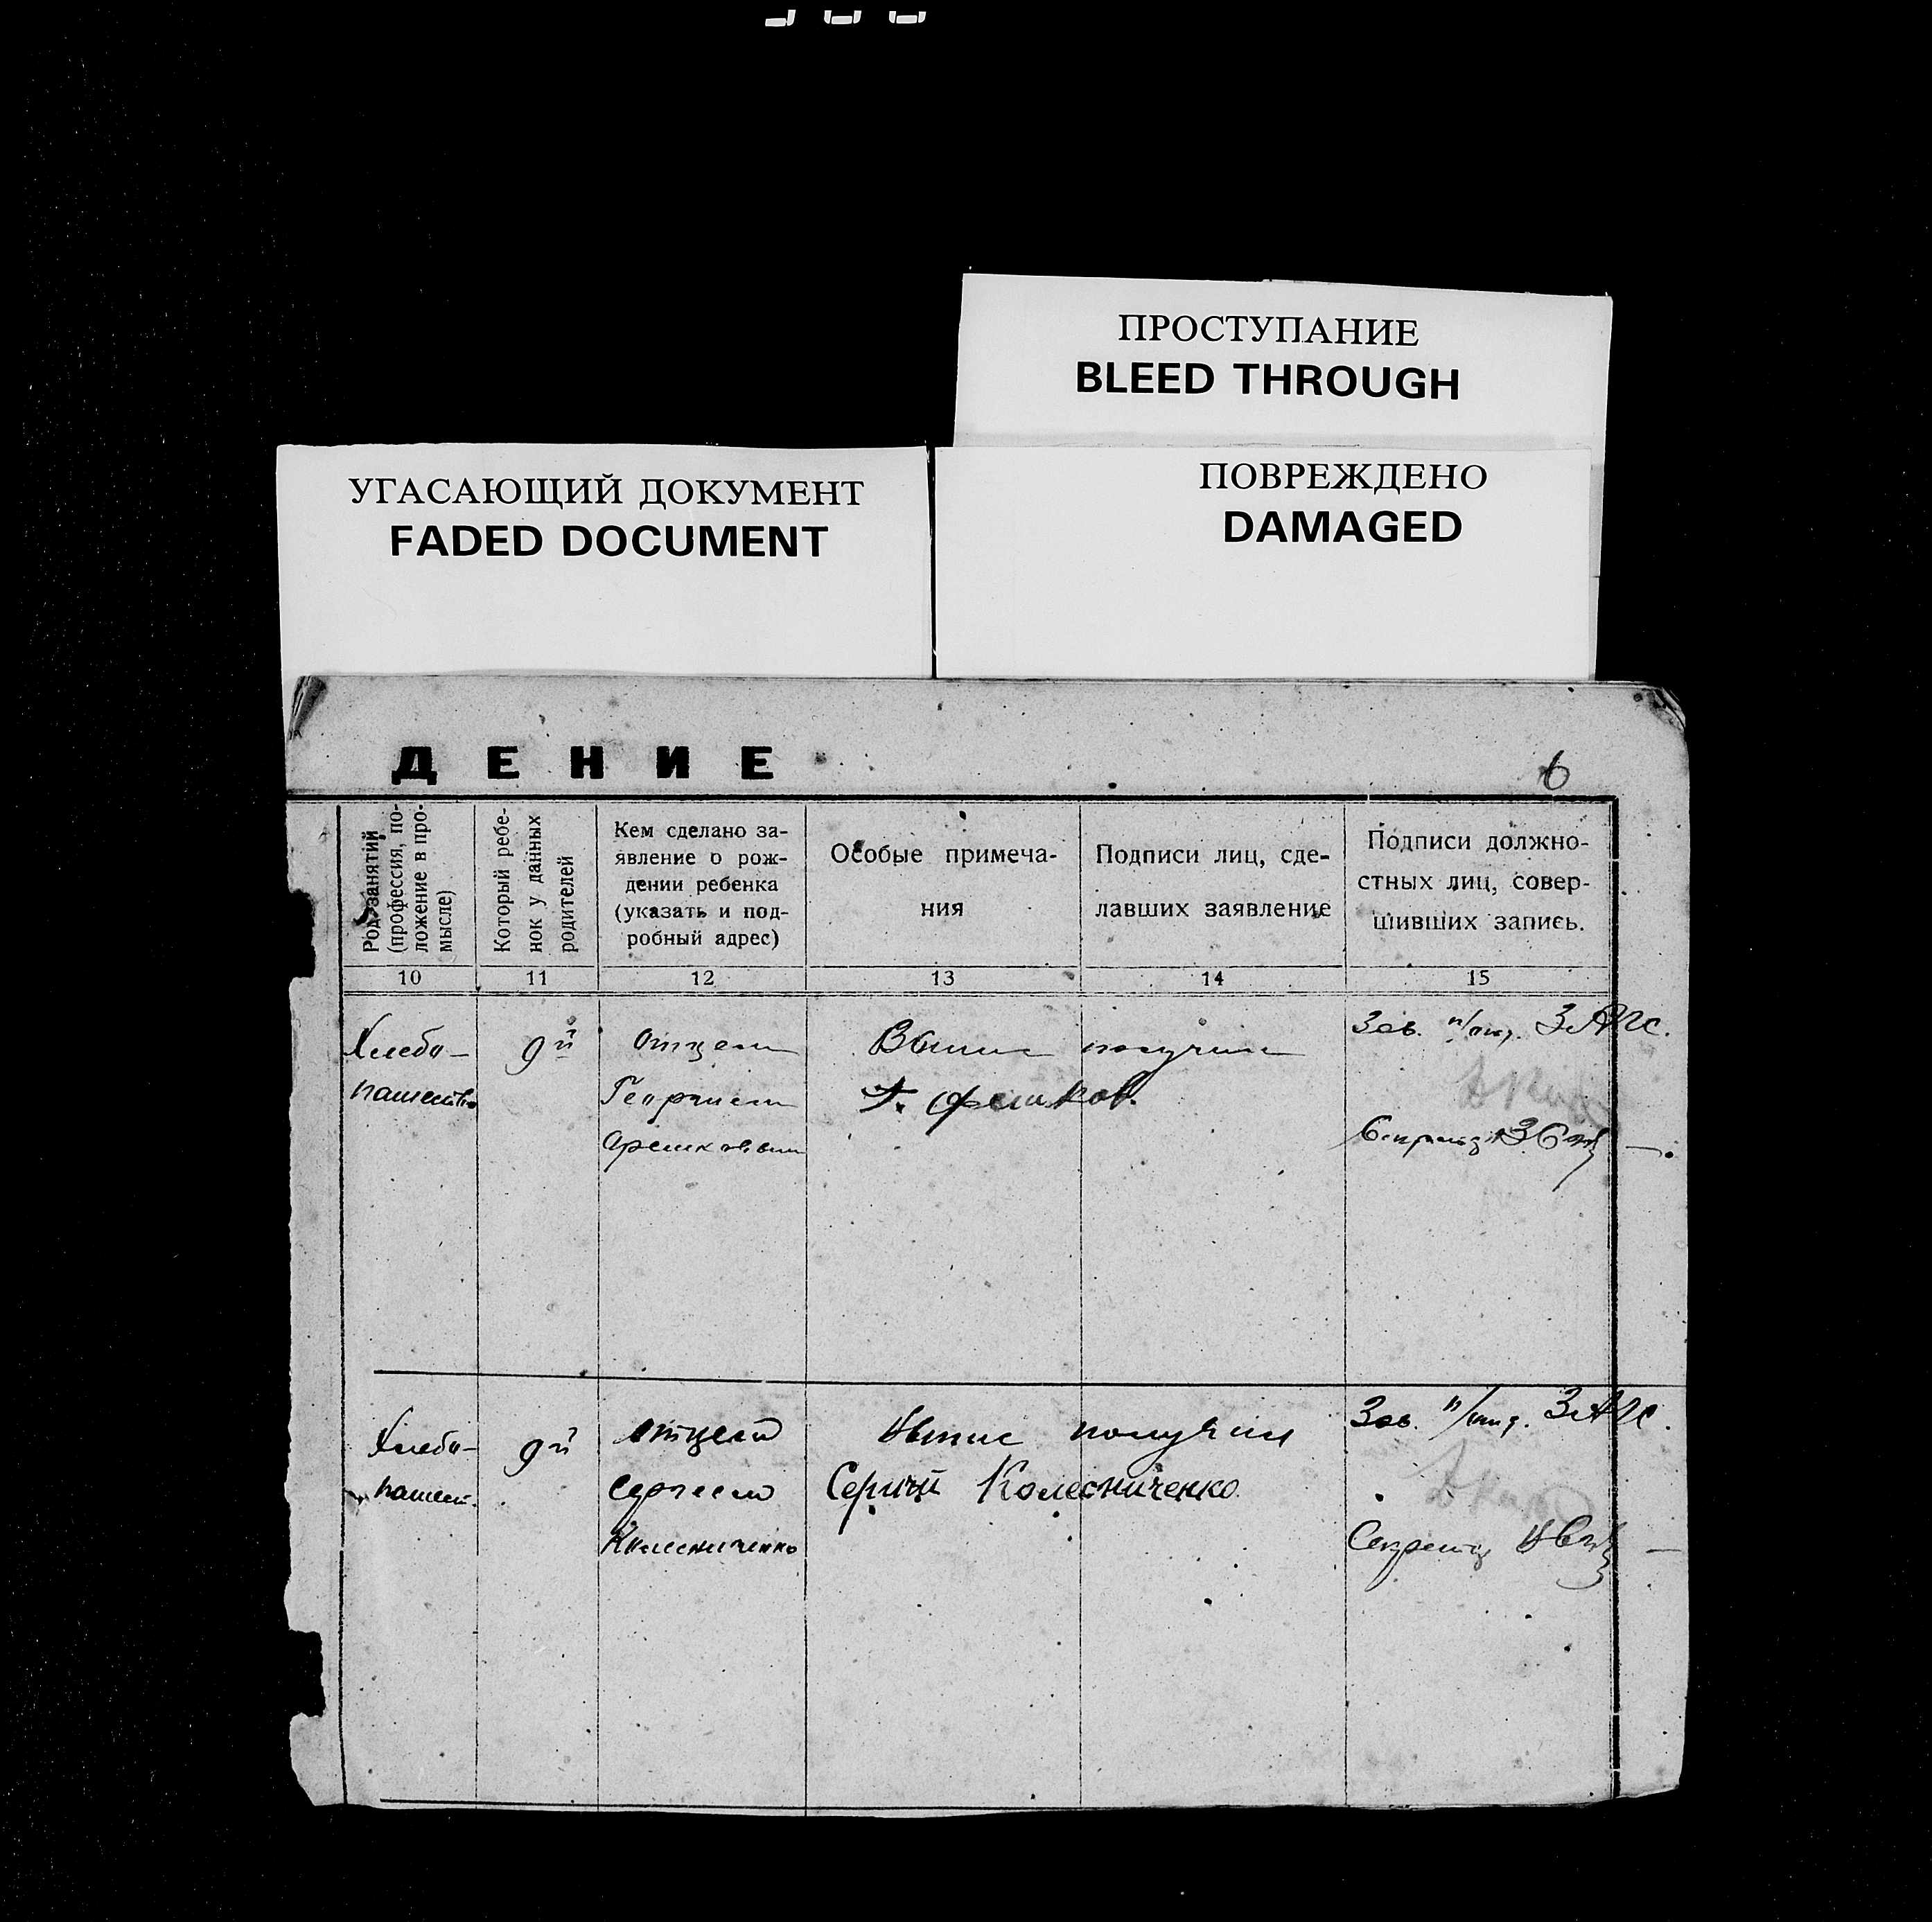 ПРОСТУПАНИЕ
BLEED THROUGH
УГАСАЮЩИЙ ДОКУМЕНТ
FADED DOCUMENT
ПОВРЕЖДЕНО
DAMAGED
ДЕНИЕ
6
Род занятий
(профессия, по-
ложение в про-
мысле)
Который ребе-
нок у данных
родителей
Кем сделано за-
явление о рож-
дении ребенка
(указать и под-
робный адрес)
Особые примеча-
ния
Подписи лиц, сде-
лавших заявление
Подписи должно-
стных лиц, совер-
шивших запись.
10
11
12
13
14
15
Хлебо-
пашество
9й
отцем
Георгием
Выпис получил
Зав. п/отд. ЗАГС.
Хлебо-
пашест.
9й
отцем
Сергеем
Колесниченко
Выпис получил
Сергий Колесниченко
Зав. п/отд. ЗАГС.